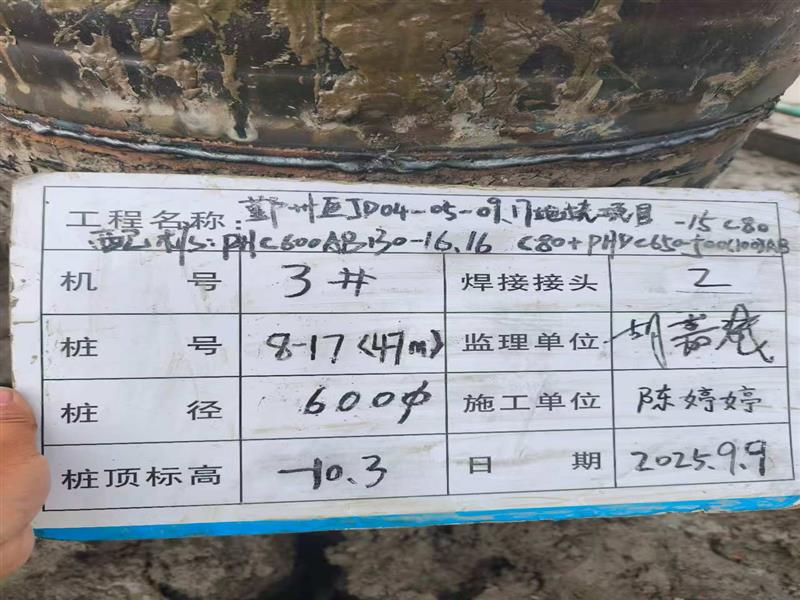 工程名称:鄞州区JD04-05-09.17地块项目 -15 C80
配桩:PHC600AB130-16.16 C80+PHDC650-500(100)AB
机号 3# 焊接接头 2
桩号 8-17(47m) 监理单位 胡嘉
桩径 600φ 施工单位 陈婷婷
桩顶标高 -10.3 日期 2025.9.9